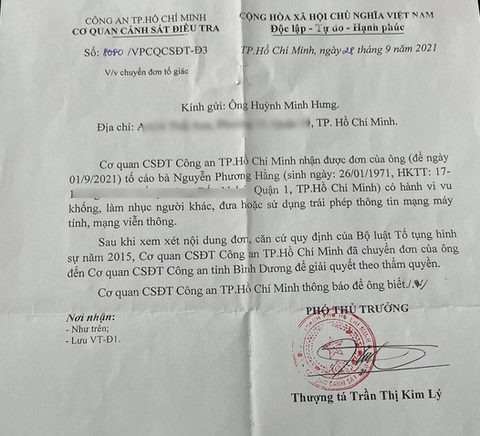 CÔNG AN TP.HỒ CHÍ MINH
CƠ QUAN CẢNH SÁT ĐIỀU TRA
CỘNG HÒA XÃ HỘI CHỦ NGHĨA VIỆT NAM
Độc lập - Tự do - Hạnh phúc
Số: 8080 /VPCQCSĐT-Đ3
TP.Hồ Chí Minh, ngày 28 tháng 9 năm 2021
V/v chuyển đơn tố giác
Kính gửi: Ông Huỳnh Minh Hưng.
Địa chỉ: , TP. Hồ Chí Minh.
Cơ quan CSĐT Công an TP.Hồ Chí Minh nhận được đơn của ông (đề ngày
01/9/2021) tố cáo bà Nguyễn Phương Hằng (sinh ngày: 26/01/1971, HKTT: 17-
Quận 1, TP.Hồ Chí Minh) có hành vi vu
khống, làm nhục người khác, đưa hoặc sử dụng trái phép thông tin mạng máy
tính, mạng viễn thông.
Sau khi xem xét nội dung đơn, căn cứ quy định của Bộ luật Tố tụng hình
sự năm 2015, Cơ quan CSĐT Công an TP.Hồ Chí Minh đã chuyển đơn của ông
đến Cơ quan CSĐT Công an tỉnh Bình Dương để giải quyết theo thẩm quyền.
Cơ quan CSĐT Công an TP.Hồ Chí Minh thông báo để ông biết./.
Nơi nhận:
- Như trên;
- Lưu VT-Đ1.
PHÓ THỦ TRƯỞNG
Thượng tá Trần Thị Kim Lý